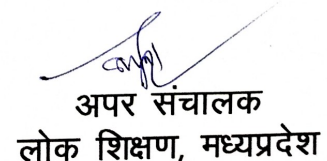 अपर संचालक
लोक शिक्षण, मध्यप्रदेश